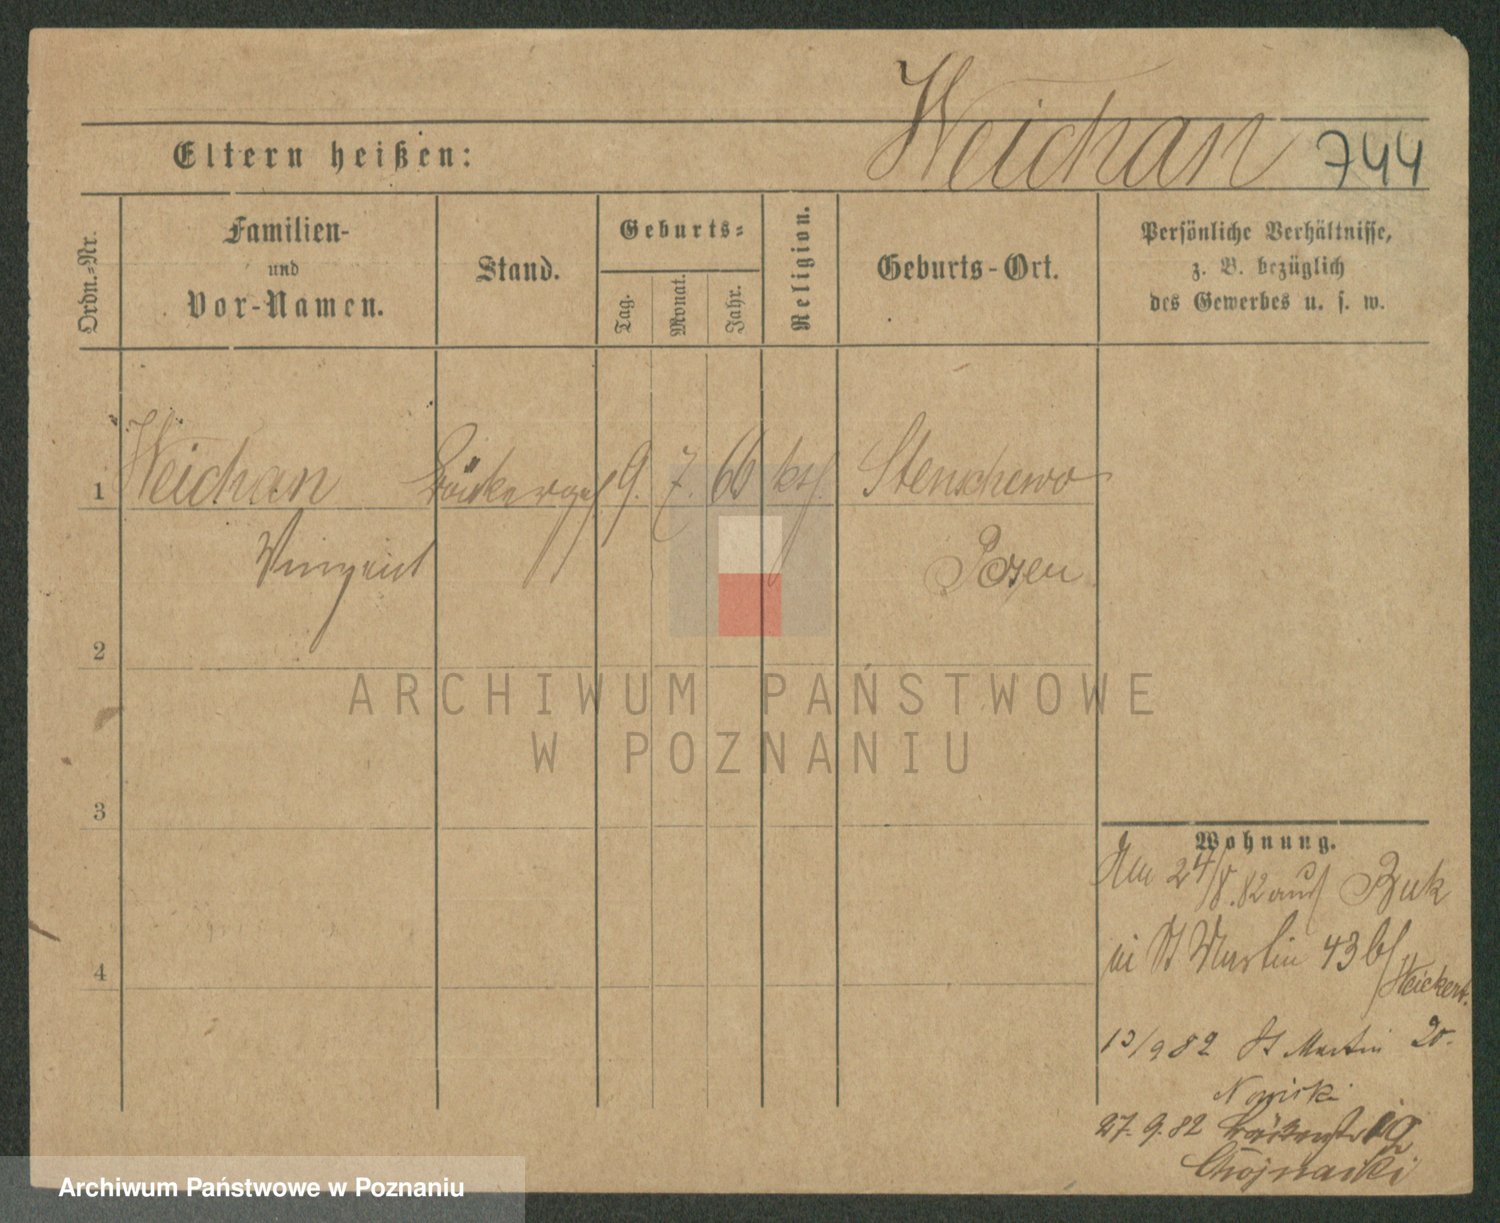 Weichan 744
Eltern heißen:
Ordn.-Nr.
Familien-
und
Vor-Namen.
Stand.
Geburts-
Tag.
Monat.
Jahr.
Religion.
Geburts-Ort.
Persönliche Verhältnisse,
z. B. bezüglich
des Gewerbes u. s. w.
1 Weichan Bäckerges 9. 7. 66 kth. Stenschewo
Vinzent Posen
2
ARCHIWUM PAŃSTWOWE
W POZNANIU
3
Wohnung.
Am 24/8.82 aus Buk
4
in St Martin 43 b/
13/9 82 St Martin 20.
27. 9. 82
Chojnacki
Archiwum Państwowe w Poznaniu